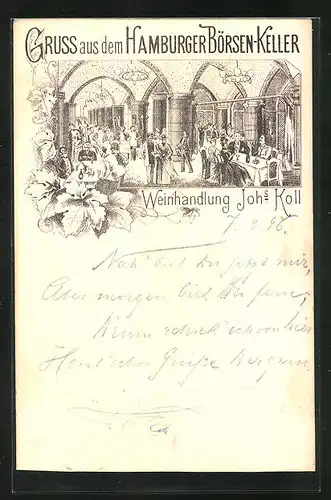 GRUSS aus dem HAMBURGER BÖRSEN-KELLER
Weinhandlung Johs Koll
7. 2. 96.
Nah' bist Du jetzt mir,
Aber morgen bist Du fern;
schick' schon hier
Heut' schon Grüße